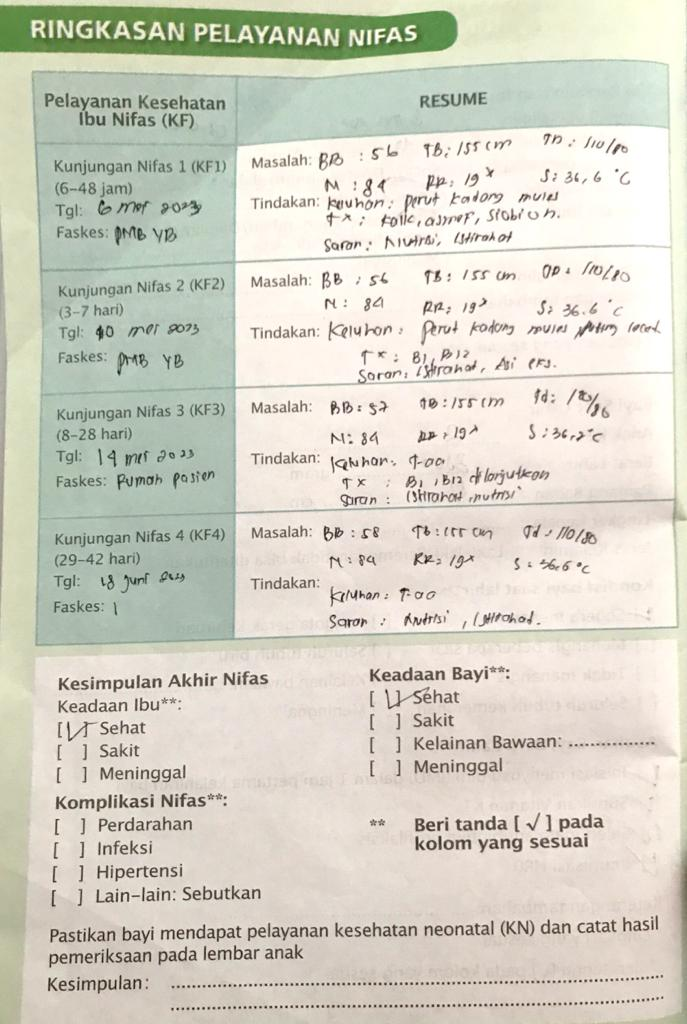 RINGKASAN PELAYANAN NIFAS
Pelayanan Kesehatan
Ibu Nifas (KF)
RESUME
Kunjungan Nifas 1 (KF1)
(6-48 jam)
Tgl: 6 mei 2023
Faskes: PMB YB
Masalah: BB : 56 TB: 155 cm TD: 110/80
N : 84 RR: 19x S: 36,6 °C
Tindakan: Keluhan: perut kadang mules
Tx : kalk, asmef, Siobion.
Saran: Nutrisi, istirahat
Kunjungan Nifas 2 (KF2)
(3-7 hari)
Tgl: 10 mei 2023
Faskes: PMB YB
Masalah: BB : 56 TB: 155 cm TD: 110/80
N: 84 RR: 19x S: 36.6 °C
Tindakan: Keluhan: perut kadang mules puting lecet
Tx : B1, B12
Saran: istirahat, Asi eks.
Kunjungan Nifas 3 (KF3)
(8-28 hari)
Tgl: 14 mei 2023
Faskes: Rumah pasien
Masalah: BB: 57 TB: 155 cm Td:
N: 84 RR: 19x S: 36,2°C
Tindakan: Keluhan: T-aa
Tx : B1, B12 dilanjutkan
Saran : istirahat, nutrisi
Kunjungan Nifas 4 (KF4)
(29-42 hari)
Tgl: 18 Juni 2023
Faskes:
Masalah: BB: 58 Tb: 155 cm Td: 110/80
N: 84 RR: 19x S: 36,6 °C
Tindakan:
Keluhan: T-aa
Saran : Nutrisi, istirahat.
Kesimpulan Akhir Nifas
Keadaan Ibu**:
[√] Sehat
[ ] Sakit
[ ] Meninggal
Komplikasi Nifas**:
[ ] Perdarahan
[ ] Infeksi
[ ] Hipertensi
[ ] Lain-lain: Sebutkan
Keadaan Bayi**:
[√] Sehat
[ ] Sakit
[ ] Kelainan Bawaan: ................
[ ] Meninggal
** Beri tanda [ √ ] pada
kolom yang sesuai
Pastikan bayi mendapat pelayanan kesehatan neonatal (KN) dan catat hasil
pemeriksaan pada lembar anak
Kesimpulan : ................